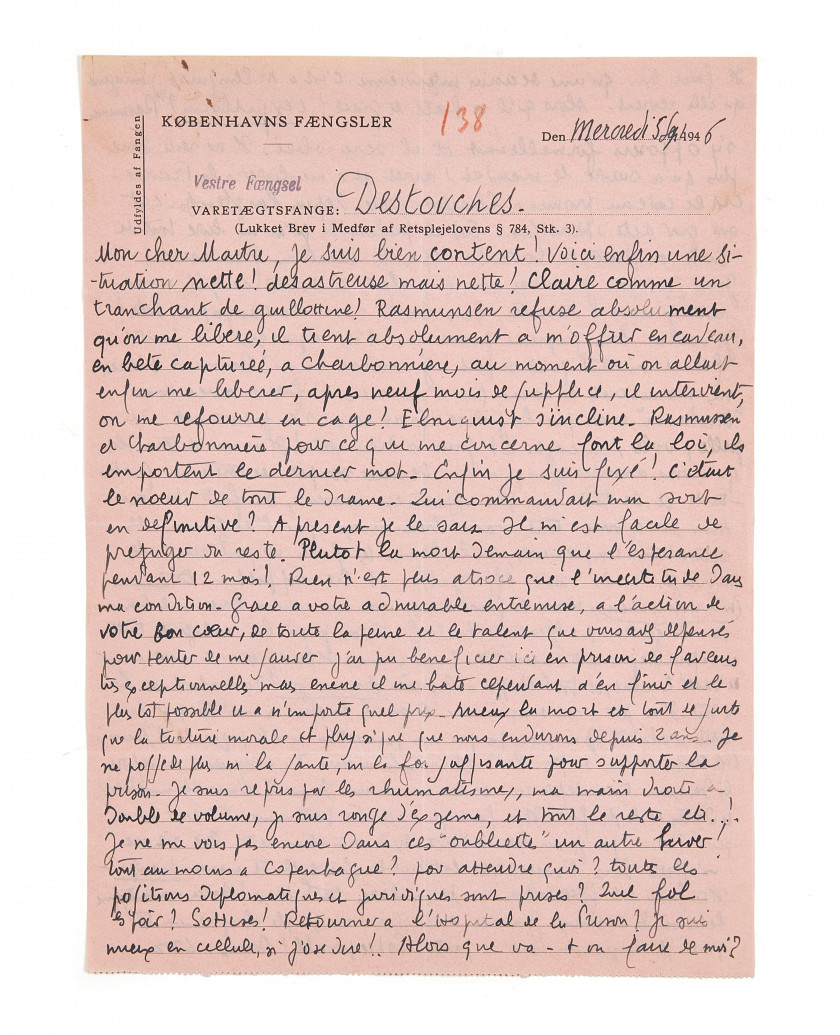 Udfyldes af Fangen
KØBENHAVNS FÆNGSLER
138
Den Mercredi 5/9 1946
Vestre Fængsel
VARETÆGTSFANGE: Destouches.
(Lukket Brev i Medfør af Retsplejelovens § 784, Stk. 3).
Mon cher Maitre, je suis bien content! Voici enfin une si-
-tuation nette! désastreuse mais nette! Claire comme un
tranchant de guillotine! Rasmunsen refuse absolument
qu'on me libere, il tient absolument a m'offrir en cadeau,
en bete capturéé, a Charbonnière, au moment où on allait
enfin me liberer, apres neuf mois de supplice, il intervient,
on me refourre en cage! Elmquist s'incline. Rasmussen
et Charbonnière pour ce qui me concerne font la loi, ils
emportent le dernier mot. Enfin je suis fixé! C'était
le noeur de tout le Drame. Qui commandait mon sort
en definitive? A present je le sais Il m'est facile de
prejuger du reste. Plutot la mort Demain que l'esperance
pendant 12 mois! Rien n'est plus atroce que l'incertitude Dans
ma condition. Grace a votre admirable entremise, a l'action de
votre Bon cœur, de toute la peine et le talent que vous avez depensés
pour tenter de me sauver j'ai pu beneficier ici en prison de faveurs
tres exceptionnelles mais encore il me hate cependant d'en finir et le
plus tot possible et a n'importe quel prix. Mieux la mort et tout de suite
que la torture morale et physique que nous endurons depuis 2 ans. Je
ne possede plus ni la sante, ni la foi suffisante pour supporter la
prison. Je suis repris par les rhumatismes, ma main droite a
Doublé de volume, je suis rongé d'exzema, et tout le reste etc...!
Je ne me vois pas encore Dans ces "oubliette" un autre hiver!
tout au moins a Copenhague? por attendre quoi? toutes les
positions Diplomatiques et juridiques sont prises? Quel fol
espoir? Sottises! Retourner a l'Hopital de la Prison? Je suis
mieux en cellule, si j'ose dire!. Alors que va-t on faire de moi?